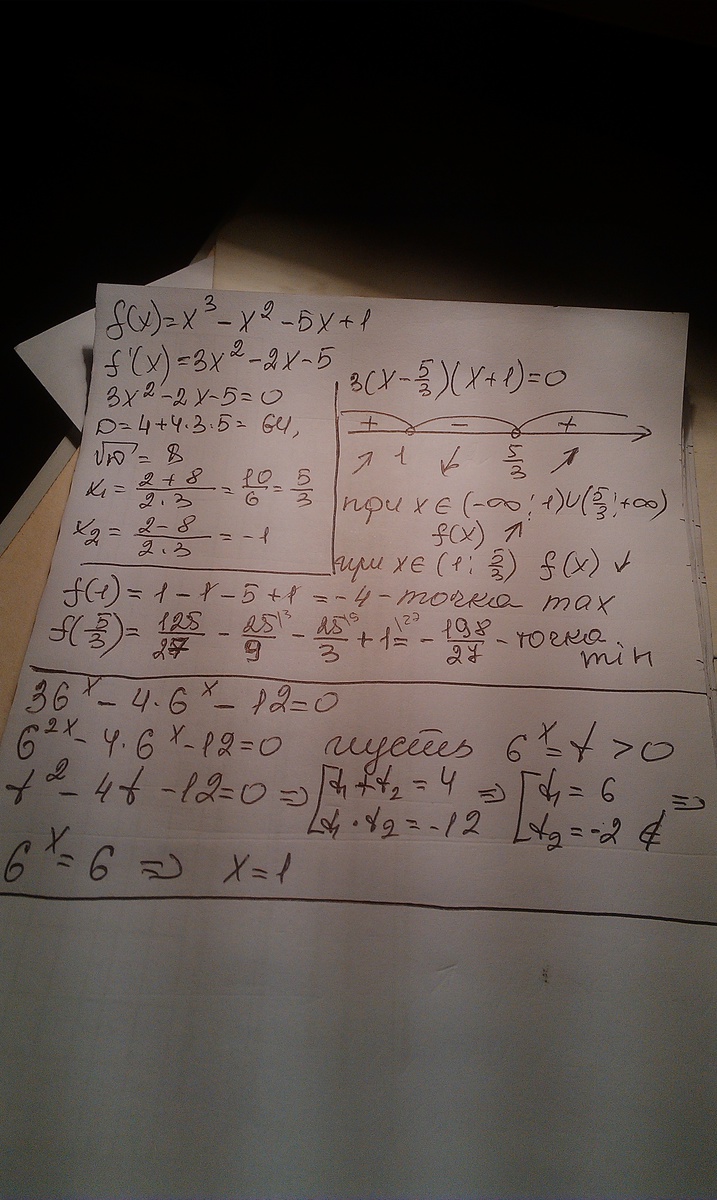 f(x)=x³-x²-5x+1
f'(x)=3x²-2x-5
3x²-2x-5=0
D=4+4·3·5=64,
√D=8
x₁=(2+8)/(2·3)=10/6=5/3
x₂=(2-8)/(2·3)=-1
3(x-5/3)(x+1)=0
+ - +
↗ 1 ↙ 5/3 ↗
при x∈(-∞;1)∪(5/3;+∞)
f(x) ↗
при x∈(1;5/3) f(x) ↓
f(1)=1-1-5+1=-4-точка max
f(5/3)=125/27-25/9\3-25/3\9+1\27=-198/27-точка
min
36ˣ-4·6ˣ-12=0
6²ˣ-4·6ˣ-12=0 пусть 6ˣ=t>0
t²-4t-12=0 ⇒ [t₁+t₂=4 ⇒ [t₁=6 ⇒
t₁·t₂=-12 t₂=-2 ∉
6ˣ=6 ⇒ x=1